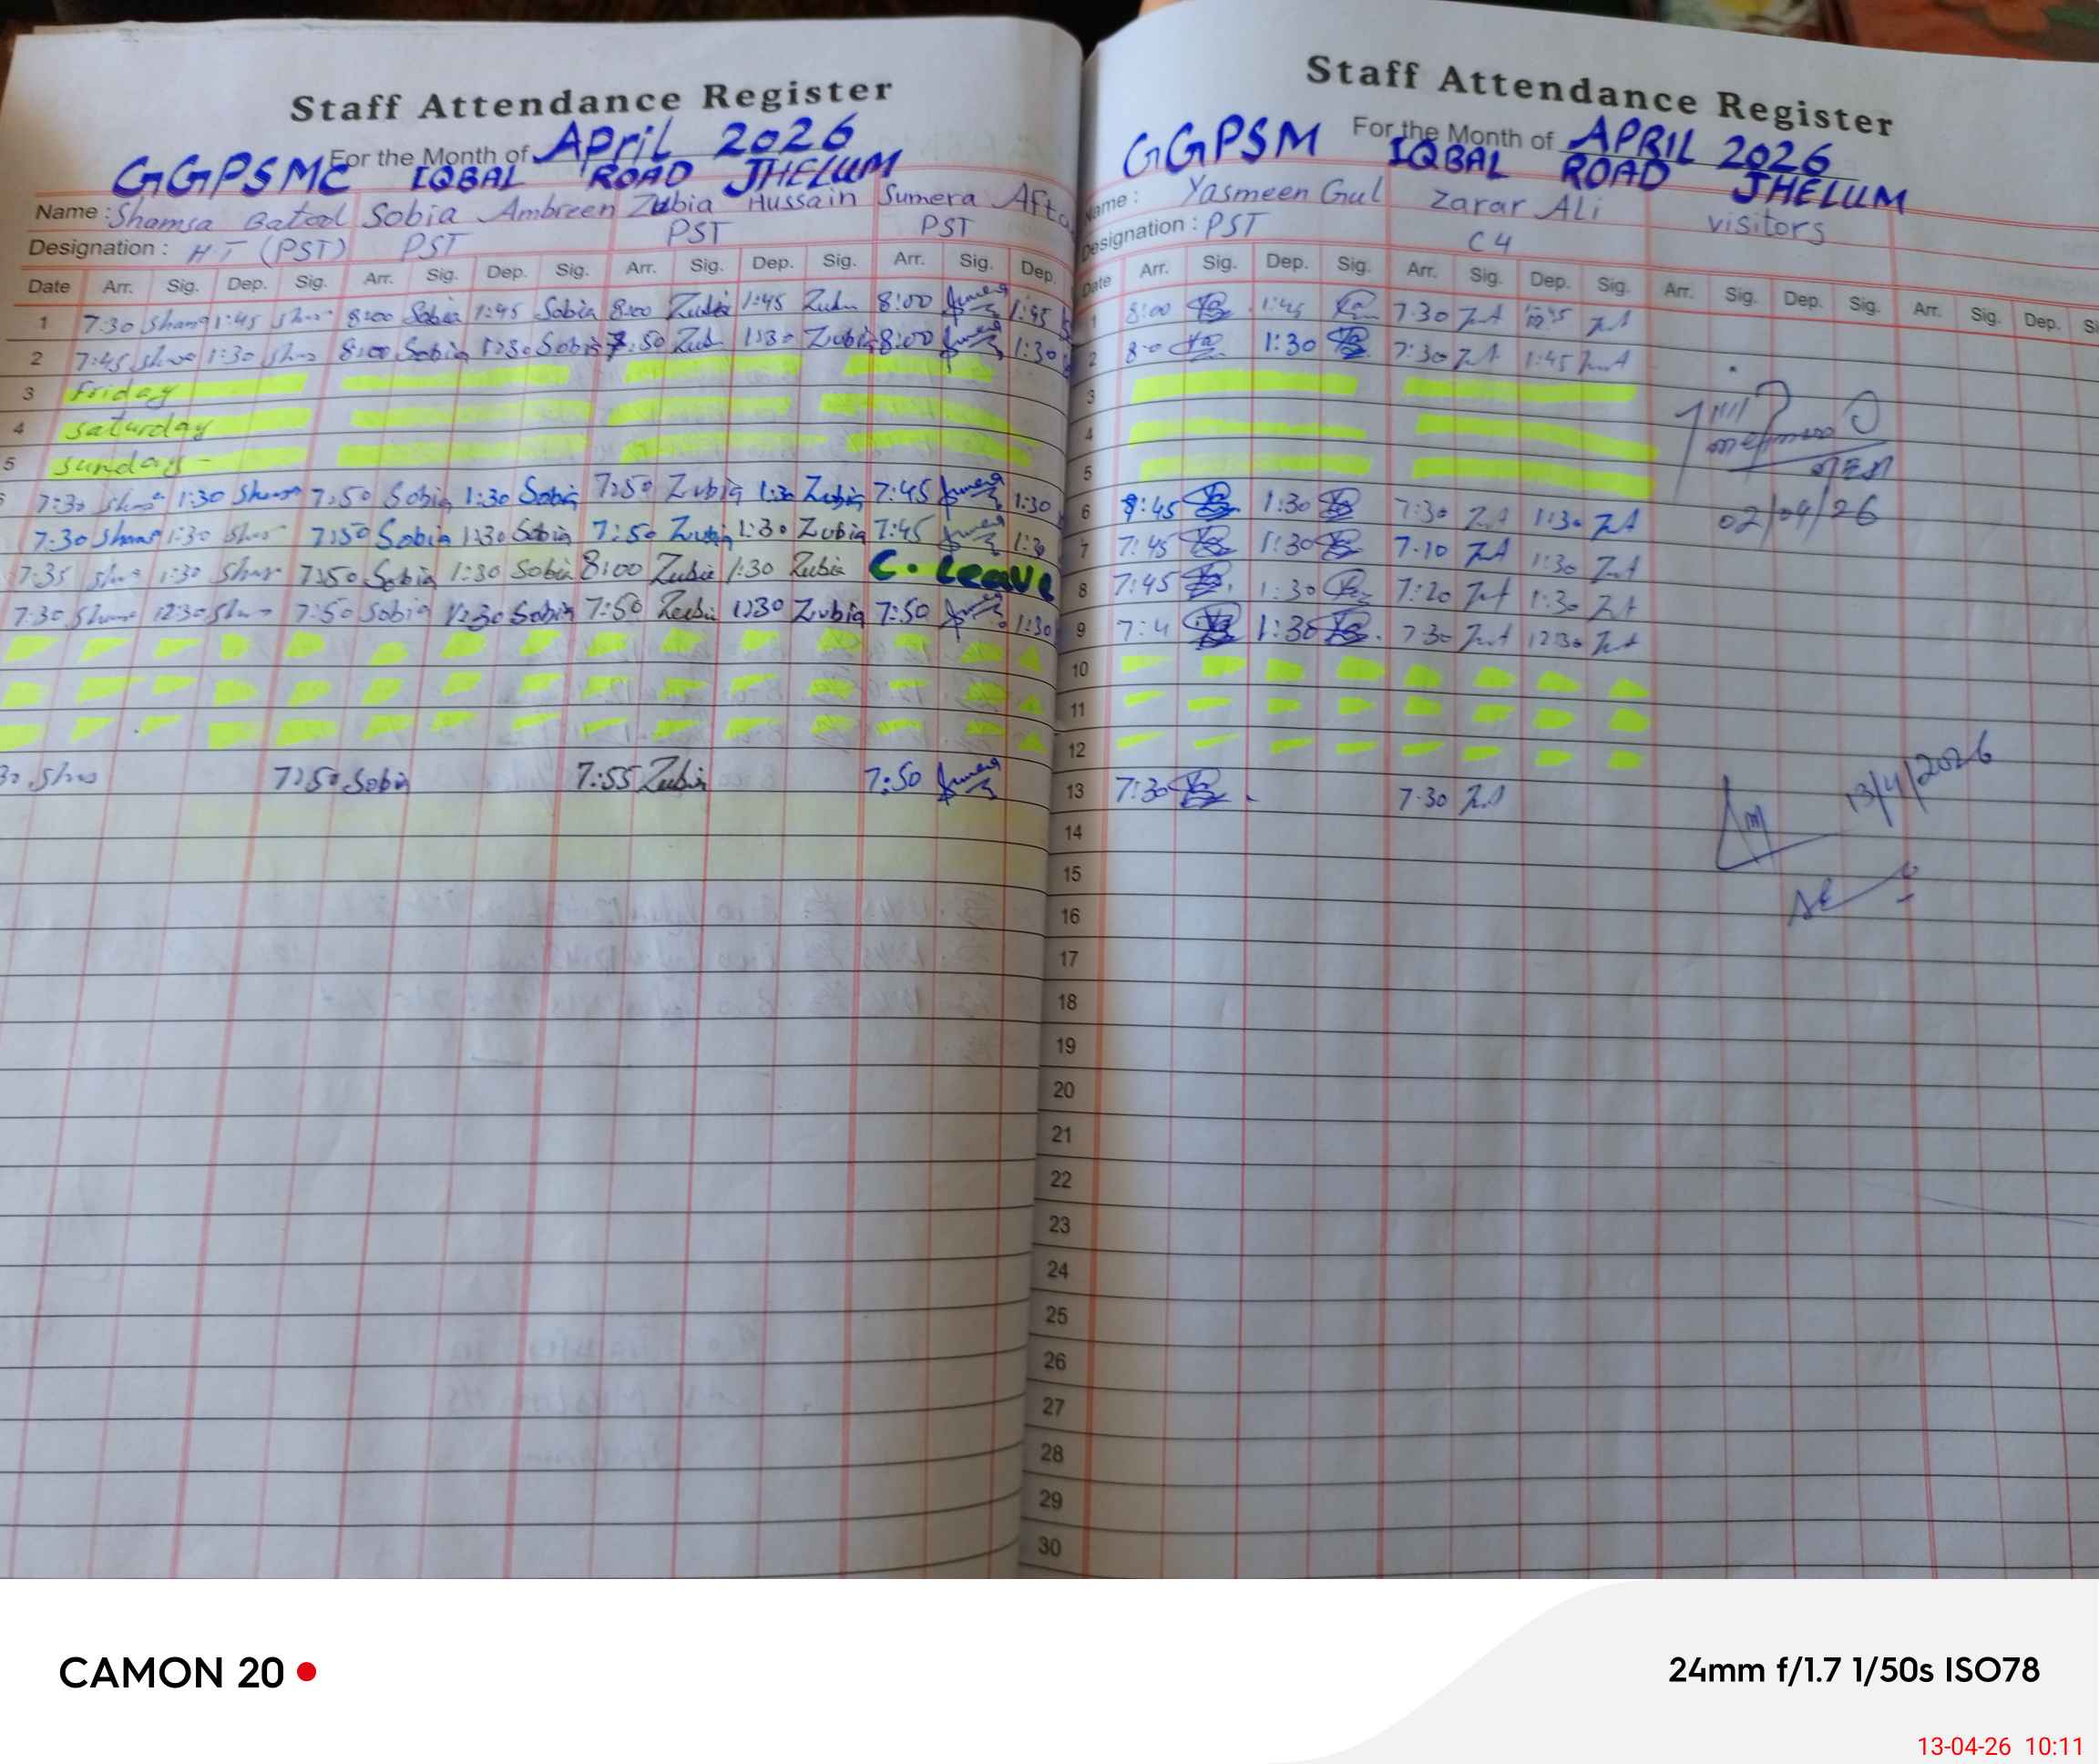 Staff Attendance Register
For the Month of April 2026
GGPSME IQBAL ROAD JHELUM
Name : Shamsa Batool Sobia Ambreen Zubia Hussain Sumera Afta
Designation : HT (PST) PST PST PST
Date Arr. Sig. Dep. Sig. Arr. Sig. Dep. Sig. Arr. Sig. Dep. Sig. Arr. Sig. Dep.
1 7:30 1:45 8:00 Sobia 1:45 Sobia 8:00 Zubia 1:45 8:00 1:45
2 7:45 1:30 8:00 Sobia 1:30 Sobia 7:50 Zub 1:30 Zubia 8:00 1:30
3 Friday
4 Saturday
5 Sunday
7:30 1:30 7:50 Sobia 1:30 Sobia 7:50 Zubia 1:30 Zubia 7:45 1:30
7:30 1:30 7:50 Sobia 1:30 Sobia 7:50 Zubia 1:30 Zubia 7:45 1:3
7:35 1:30 7:50 Sobia 1:30 Sobia 8:00 Zubia 1:30 Zubia C. Leave
7:30 12:30 7:50 Sobia 12:30 Sobia 7:50 Zubia 1:30 Zubia 7:50 1:30
7:50 Sobia 7:55 Zubia 7:50
Staff Attendance Register
For the Month of APRIL 2026
GGPSM IQBAL ROAD JHELUM
Name : Yasmeen Gul Zarar Ali visitors
Designation : PST C4
Date Arr. Sig. Dep. Sig. Arr. Sig. Dep. Sig. Arr. Sig. Dep. Sig. Arr. Sig. Dep. Si
1 8:00 1:45 7:30 ZA ZA
2 8-0 1:30 7:30 ZA 1:45
3
4
5
6 1:30 7:30 ZA 1:30 ZA
02/04/26
7 7:45 1:30 7.10 ZA 1:30 ZA
8 7:45 1:30 7:20 ZA 1:30 ZA
9 7:4 1:30 7:30 ZA 12:30 ZA
10
11
12
13 7:30 7.30 ZA
13/4/2026
14
15
16
17
18
19
20
21
22
23
24
25
26
27
28
29
30
CAMON 20
24mm f/1.7 1/50s ISO78
13-04-26 10:11